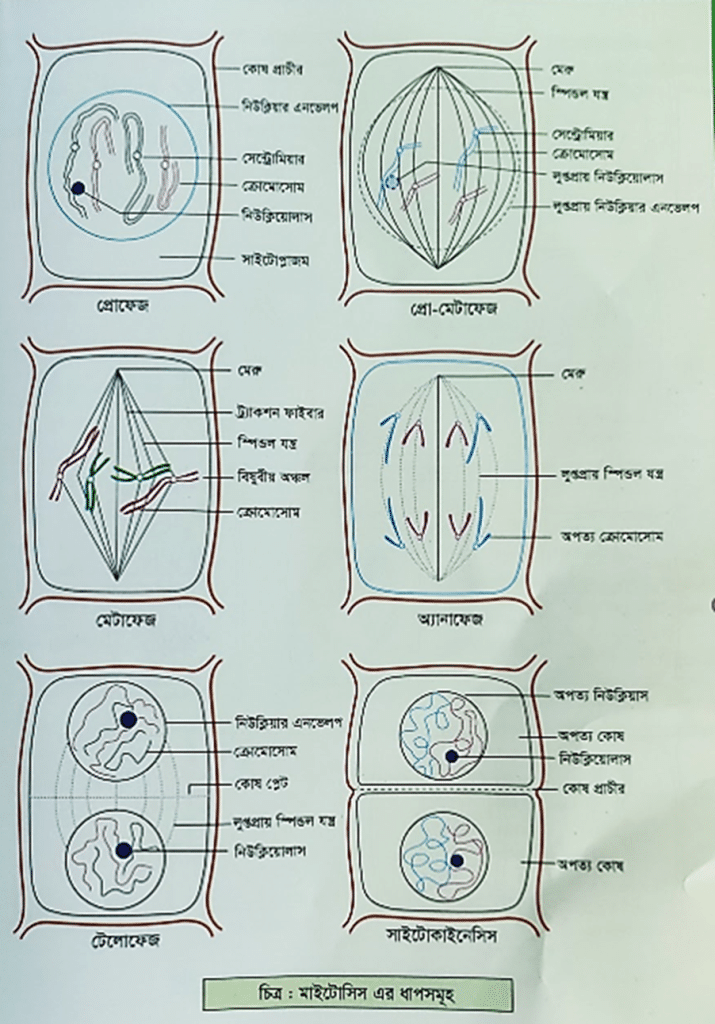 কোষ প্রাচীর
নিউক্লিয়ার এনভেলপ
সেন্ট্রোমিয়ার
ক্রোমোসোম
নিউক্লিয়োলাস
সাইটোপ্লাজম
প্রোফেজ
মেরু
স্পিন্ডল যন্ত্র
সেন্ট্রোমিয়ার
ক্রোমোসোম
লুপ্তপ্রায় নিউক্লিয়োলাস
লুপ্তপ্রায় নিউক্লিয়ার এনভেলপ
প্রো-মেটাফেজ
মেরু
ট্র্যাকশন ফাইবার
স্পিন্ডল যন্ত্র
বিষুবীয় অঞ্চল
ক্রোমোসোম
মেটাফেজ
মেরু
লুপ্তপ্রায় স্পিন্ডল যন্ত্র
অপত্য ক্রোমোসোম
অ্যানাফেজ
নিউক্লিয়ার এনভেলপ
ক্রোমোসোম
কোষ প্লেট
লুপ্তপ্রায় স্পিন্ডল যন্ত্র
নিউক্লিয়োলাস
টেলোফেজ
অপত্য নিউক্লিয়াস
অপত্য কোষ
নিউক্লিয়োলাস
কোষ প্রাচীর
অপত্য কোষ
সাইটোকাইনেসিস
চিত্র : মাইটোসিস এর ধাপসমূহ